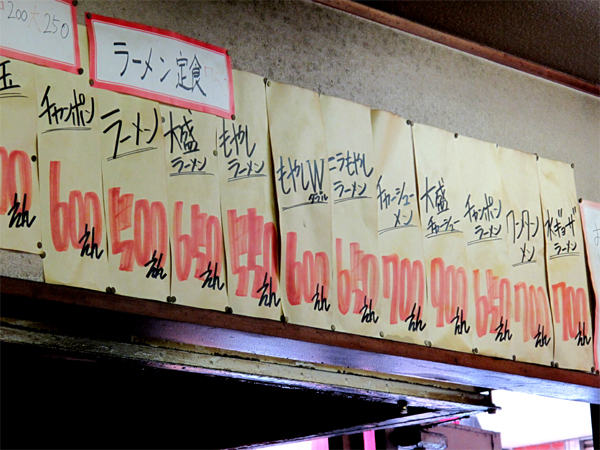 200 大 250
ラーメン定食
玉
00
えん
チャンポン
600
えん
ラーメン
500
えん
大盛
ラーメン
650
えん
もやし
ラーメン
550
えん
もやしW
ダブル
600
えん
ニラもやし
ラーメン
650
えん
チャーシュー
メン
700
えん
大盛
チャーシュー
900
えん
チャンポン
ラーメン
650
えん
ワンタン
メン
700
えん
水ギョーザ
ラーメン
700
えん